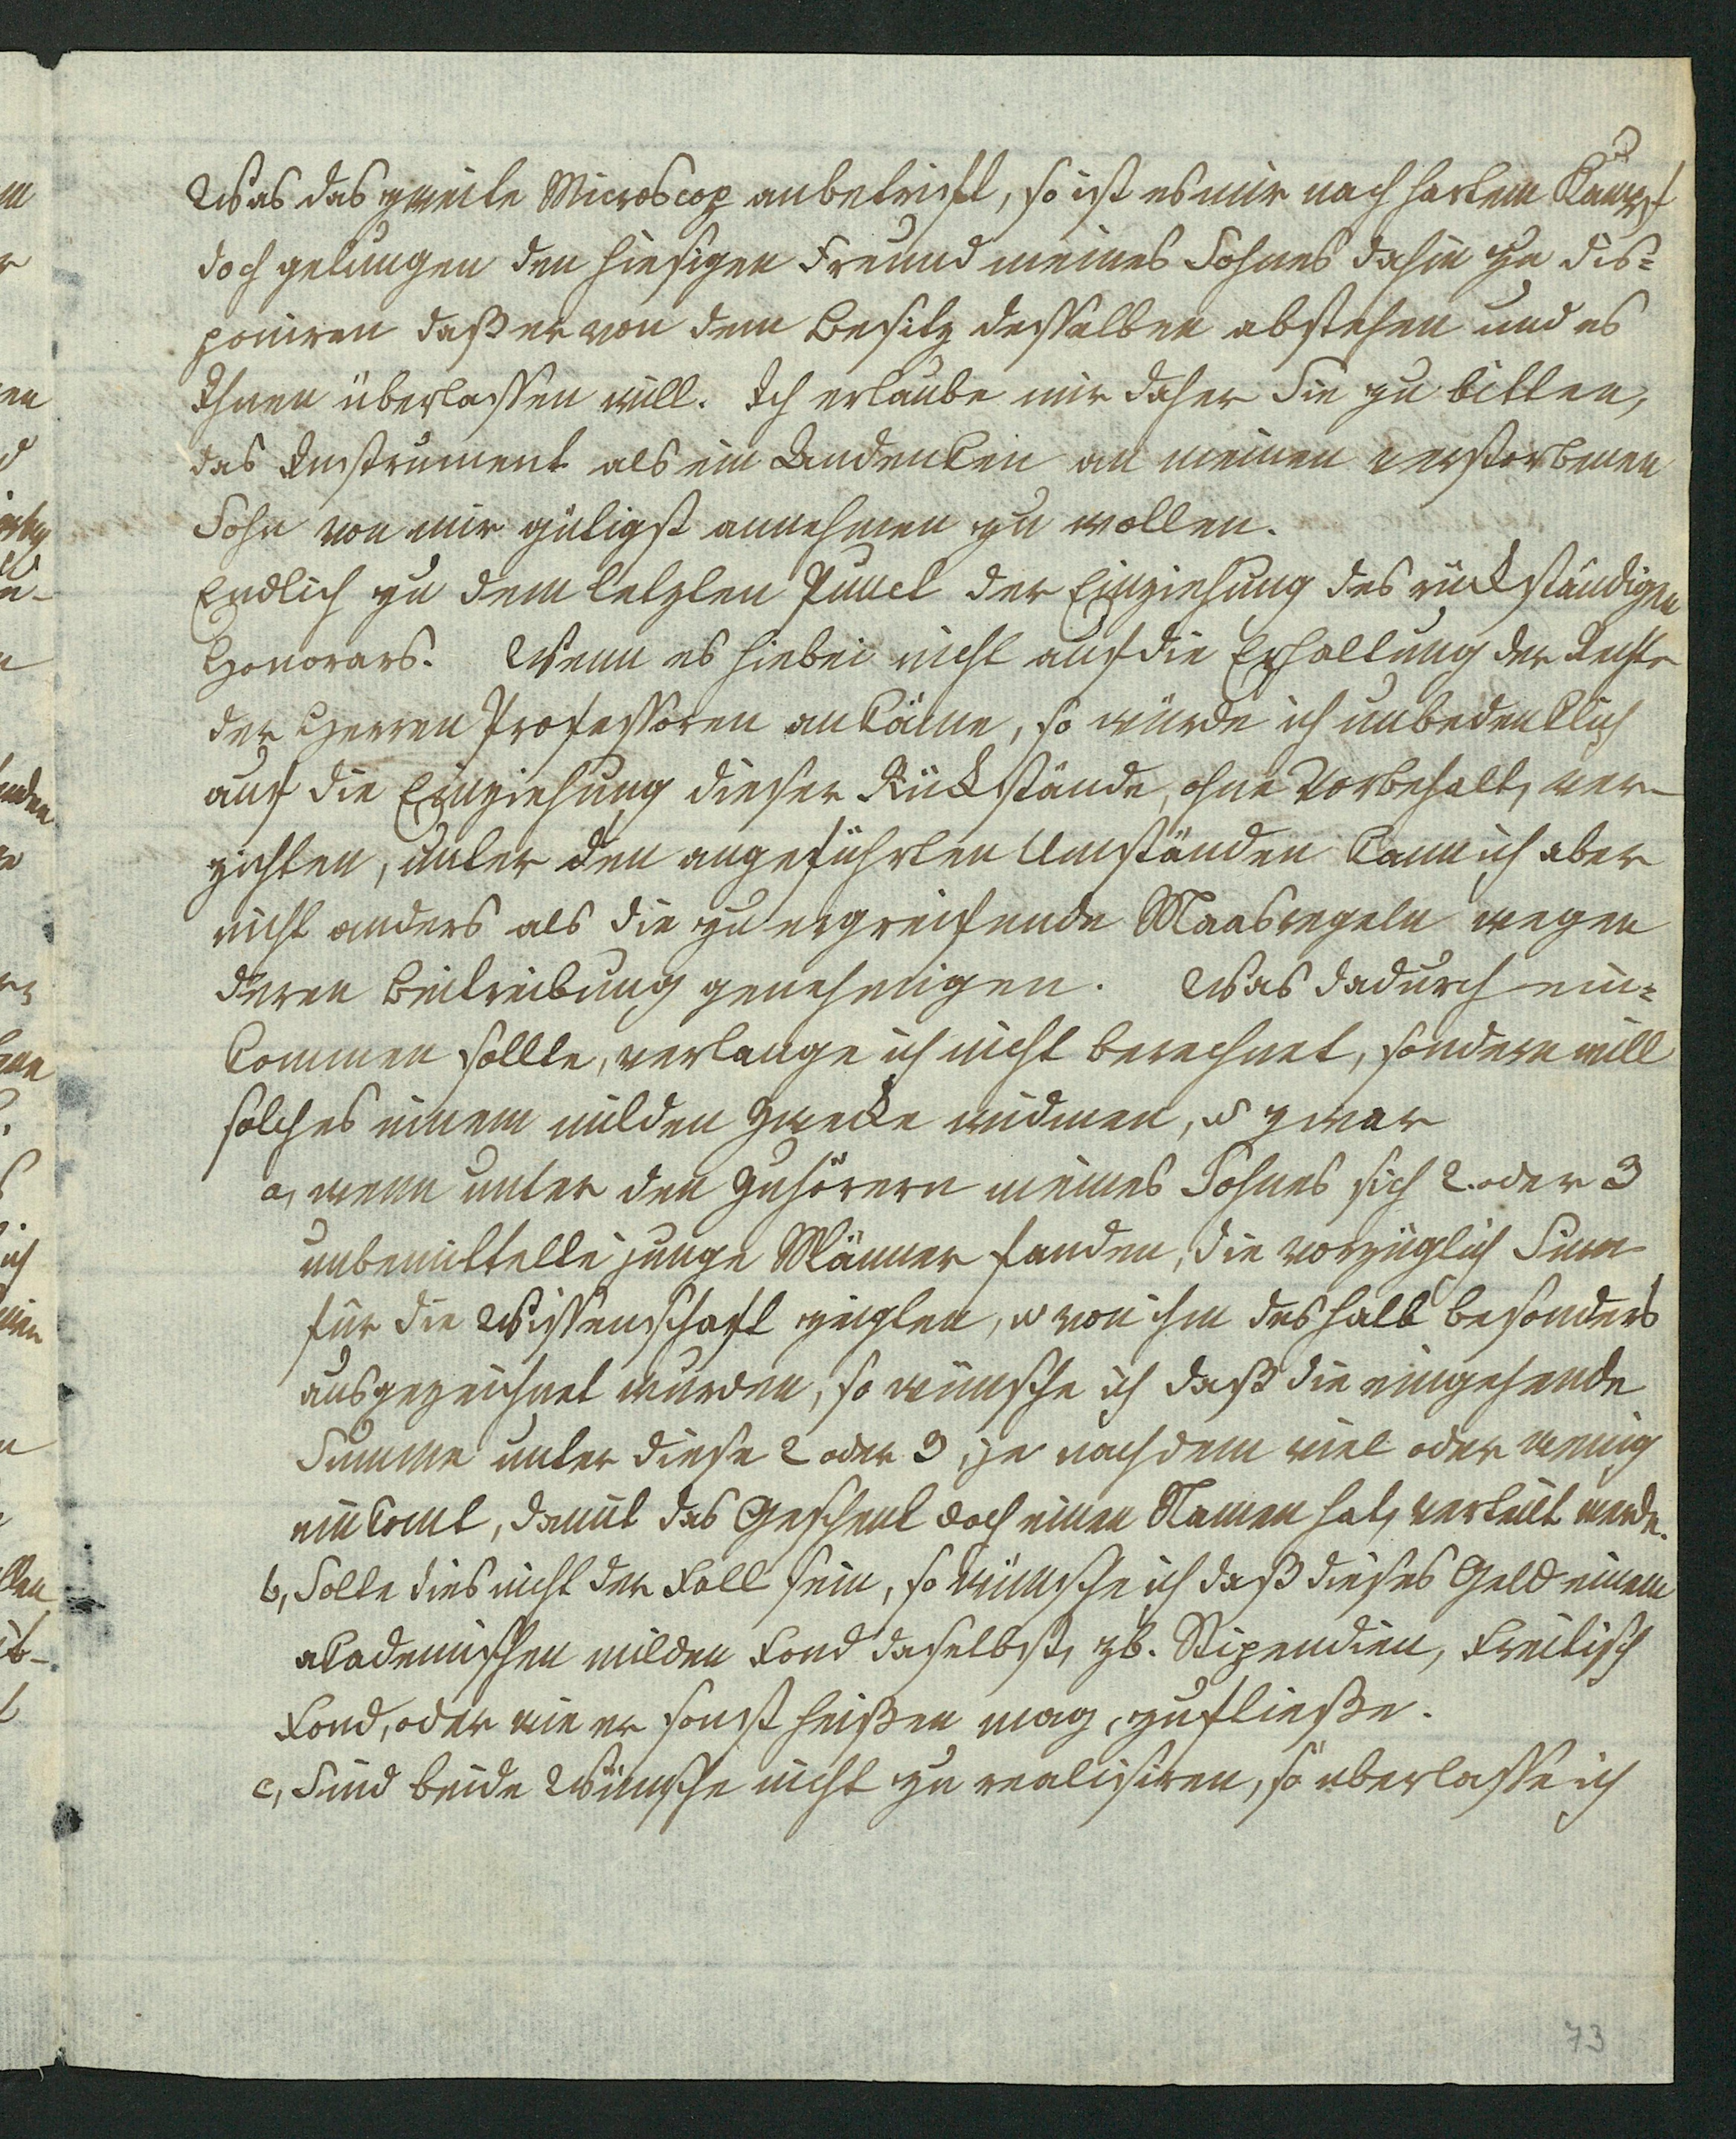 Was das zweite Microscop anbetrifft, so ist es mir nach hartem Kampf
doch gelungen den hiesigen Freund meines Sohnes dahin zu dis=
poniren daß er von dem Besitz desselben abstehen und es
Ihnen überlassen will. Ich erlaube mir daher Sie zu bitten,
das Instrument als ein Andenken an meinen verstorbenen
Sohn von mir gütigst annehmen zu wollen.
Endlich zu dem letzten Punct der Einziehung des rückständigen
Honorars. Wenn es hiebei nicht auf die Erhaltung der Rechte
der Herren Professoren ankäme, so würde ich unbedenklich
auf die Einziehung dieser Rückstände, ohne Vorbehalt, ver-
zichten, unter den angeführten Umständen kann ich aber
nicht anders als die zu ergreifende Maasregeln wegen
deren Beitreibung genehmigen. Was dadurch ein=
kommen sollte, verlange ich nicht berechnet, sondern will
solches einem milden Zwecke widmen, u zwar
a, wenn unter den Zuhörern meines Sohnes sich 2. oder 3
unbemittelte junge Männer fanden, die vorzüglich Sinn
für die Wissenschaft zeigten, u von ihm deshalb besonders
ausgezeichnet wurden, so wünsche ich daß die eingehende
Summe unter diese 2 oder 3, je nachdem viel oder wenig
einkomt, damit das Geschenk doch einen Namen hat, verteilt werde.
b, Solte dies nicht der Fall sein, so wünsche ich daß dieses Geld einem
akademischen milden Fond daselbst, zb. Stipendien, Freitisch
Fond, oder wie er sonst heißen mag, zufließe.
c, Sind beide Wünsche nicht zu realisiren, so überlasse ich
73